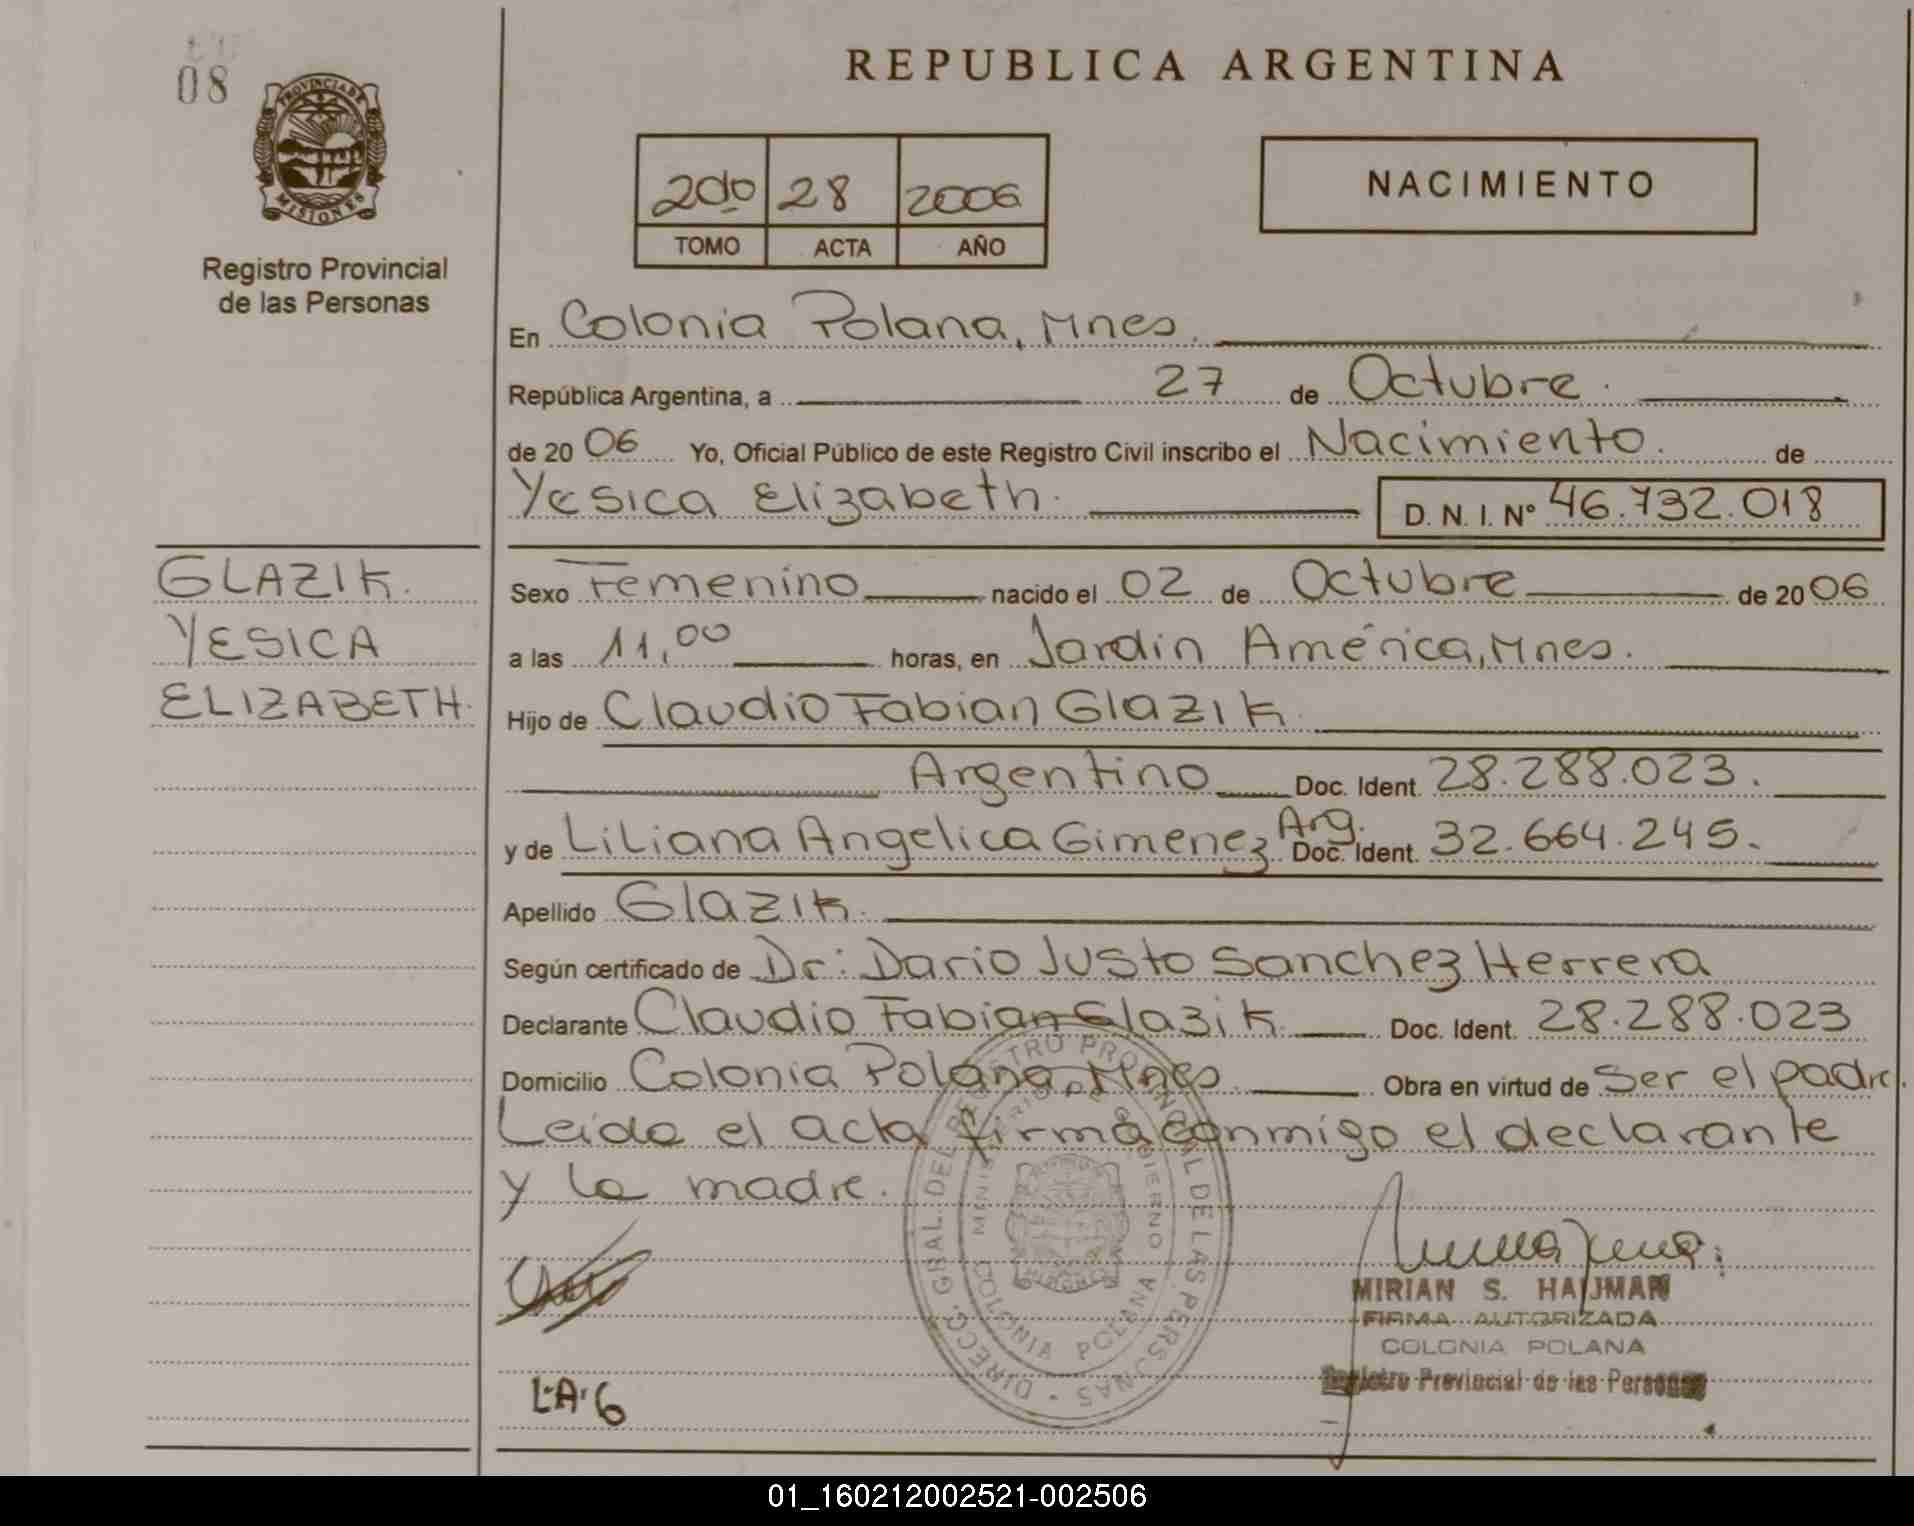 08
PROVINCIA DE
MISIONES
Registro Provincial
de las Personas
REPUBLICA ARGENTINA
2do 28 2006
TOMO ACTA AÑO
NACIMIENTO
En Colonia Polana, Mnes.
República Argentina, a 27 de Octubre.
de 20 06 Yo, Oficial Público de este Registro Civil inscribo el Nacimiento. de
Yesica Elizabeth. D. N. I. Nº 46.732.018
GLAZIK.
YESICA
ELIZABETH.
Sexo Femenino nacido el 02 de Octubre de 20 06
a las 11,00 horas, en Jardin América, Mnes.
Hijo de Claudio Fabian Glazik.
Argentino Doc. Ident. 28.288.023.
y de Liliana Angelica Gimenez Arg. Doc. Ident. 32.664.245.
Apellido Glazik.
Según certificado de Dr: Dario Justo Sanchez Herrera
Declarante Claudio Fabian Glazik. Doc. Ident. 28.288.023
Domicilio Colonia Polana, Mnes. Obra en virtud de ser el padre.
Leida el acta firma conmigo el declarante
y la madre.
DIRECC. GRAL. DEL REGISTRO PROVINCIAL DE LAS PERSONAS
MINISTERIO DE GOBIERNO
COLONIA POLANA
L.A.G
MIRIAN S. HAIJMAN
FIRMA AUTORIZADA
COLONIA POLANA
Registro Provincial de las Personas
01_160212002521-002506